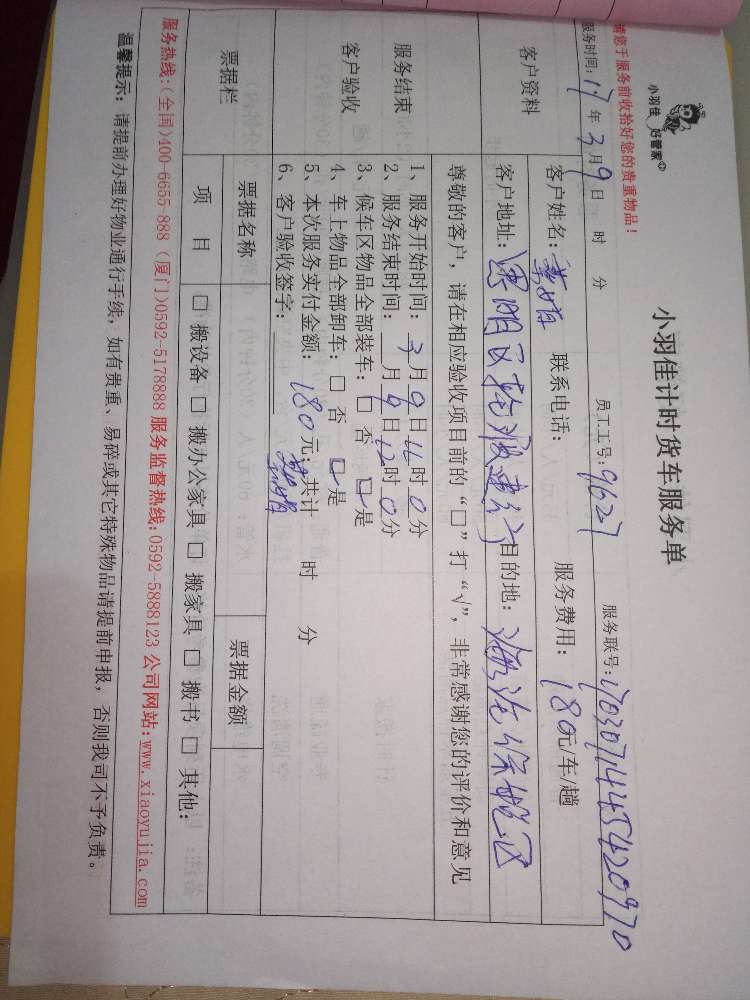 请您于服务前收拾好您的贵重物品！
小羽佳 好管家
小羽佳计时货车服务单
服务时间：17年3月9日 时 分 员工工号：9627 服务联号：1703071445420970
客户资料
客户姓名： 联系电话： 服务费用：180元/车/趟
客户地址：思明区 目的地：海沧保税区
尊敬的客户，请在相应验收项目前的“□”打“√”，非常感谢您的评价和意见
服务结束
客户验收
1、服务开始时间：3月9日 时0分
2、服务结束时间： 月9日12时0分
3、候车区物品全部装车：□ 否 □ 是
4、车上物品全部卸车：□ 否 □ 是
5、本次服务实付金额：180元；共计 时 分
6、客户验收签字：
票据栏
票据名称 票据金额
项 目 □ 搬设备 □ 搬办公家具 □ 搬家具 □ 搬书 □ 其他：
服务热线：(全国)400-6655 888 (厦门)0592-5178888 服务监督热线：0592-5888123 公司网站：www.xiaoyujia.com
温馨提示：请提前办理好物业通行手续，如有贵重、易碎或其它特殊物品请提前申报，否则我司不予负责。